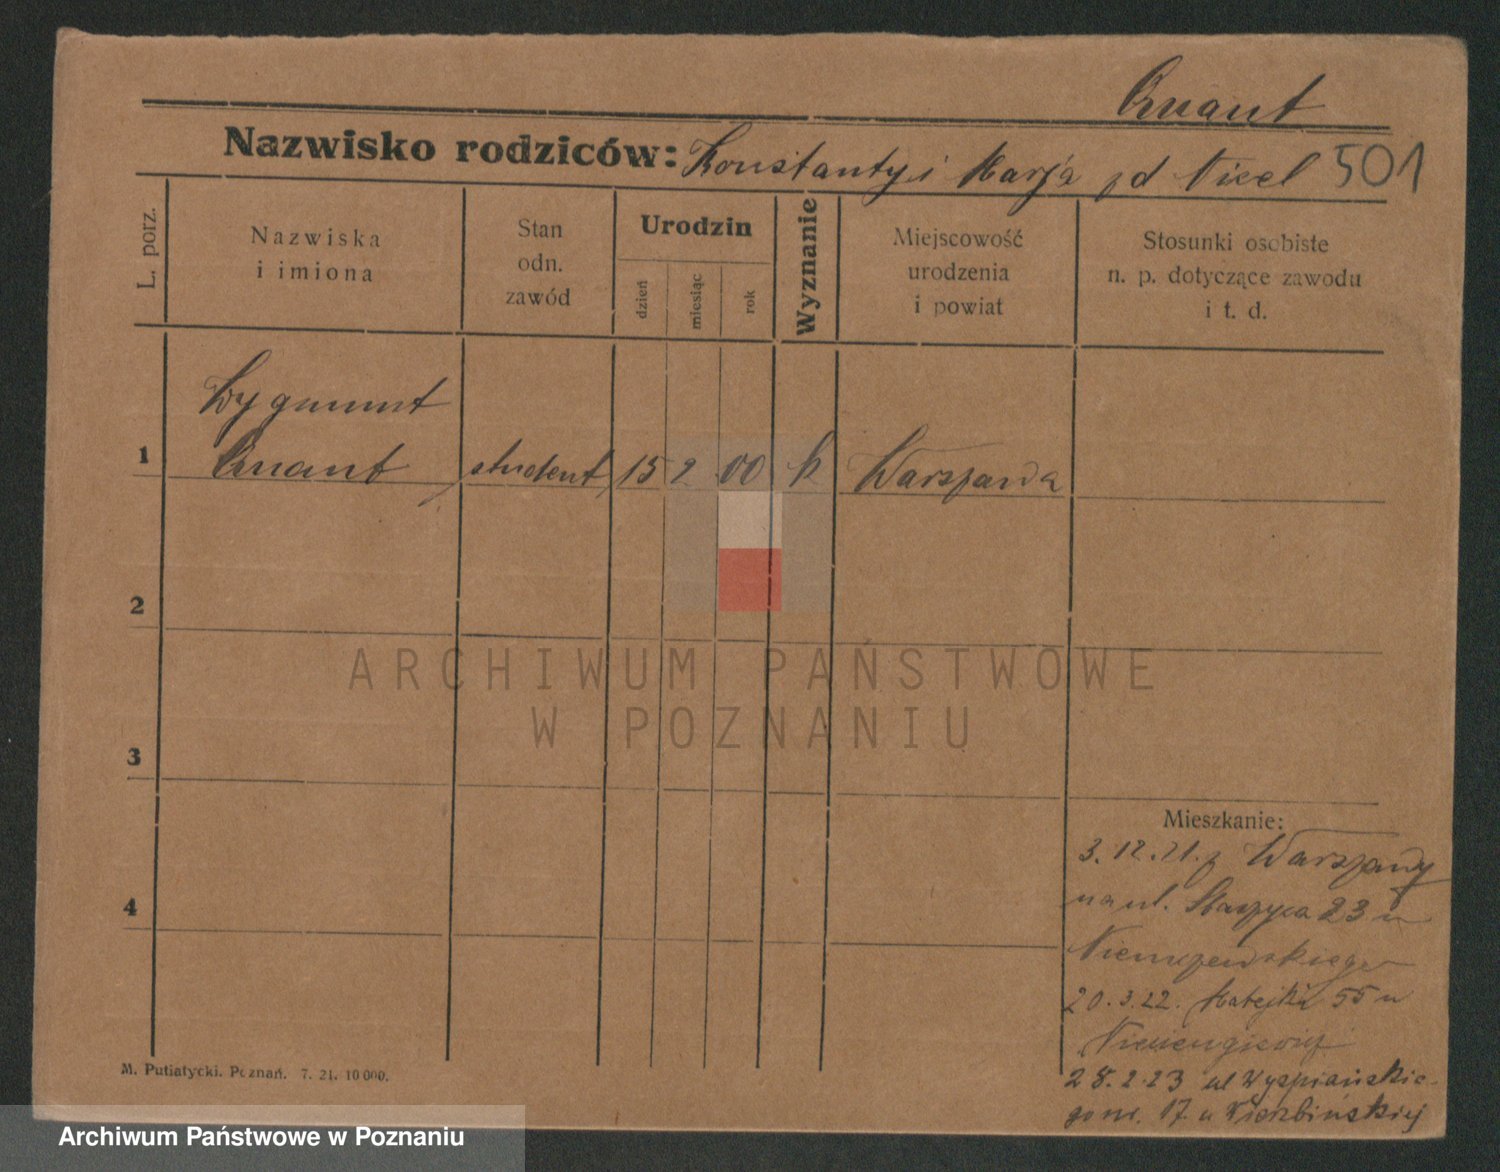 Quant
Nazwisko rodziców: Konstanty i Marja zd Nicel 501
L. porz.
Nazwiska
i imiona
Stan
odn.
zawód
Urodzin
dzień
miesiąc
rok
Wyznanie
Miejscowość
urodzenia
i powiat
Stosunki osobiste
n. p. dotyczące zawodu
i t. d.
Zygmunt
1 Quant student 15 2 00 k Warszawa
2
ARCHIWUM PAŃSTWOWE
W POZNANIU
3
Mieszkanie:
3.12.21. z Warszawy
4
na ul. Staszyca 23 u
20.3.22. Matejki 55 u
28.2.23 ul Wyspiańskie-
go nr. 17 u Wierzbińskiej
M. Putiatycki. Poznań. 7. 21. 10 000.
Archiwum Państwowe w Poznaniu